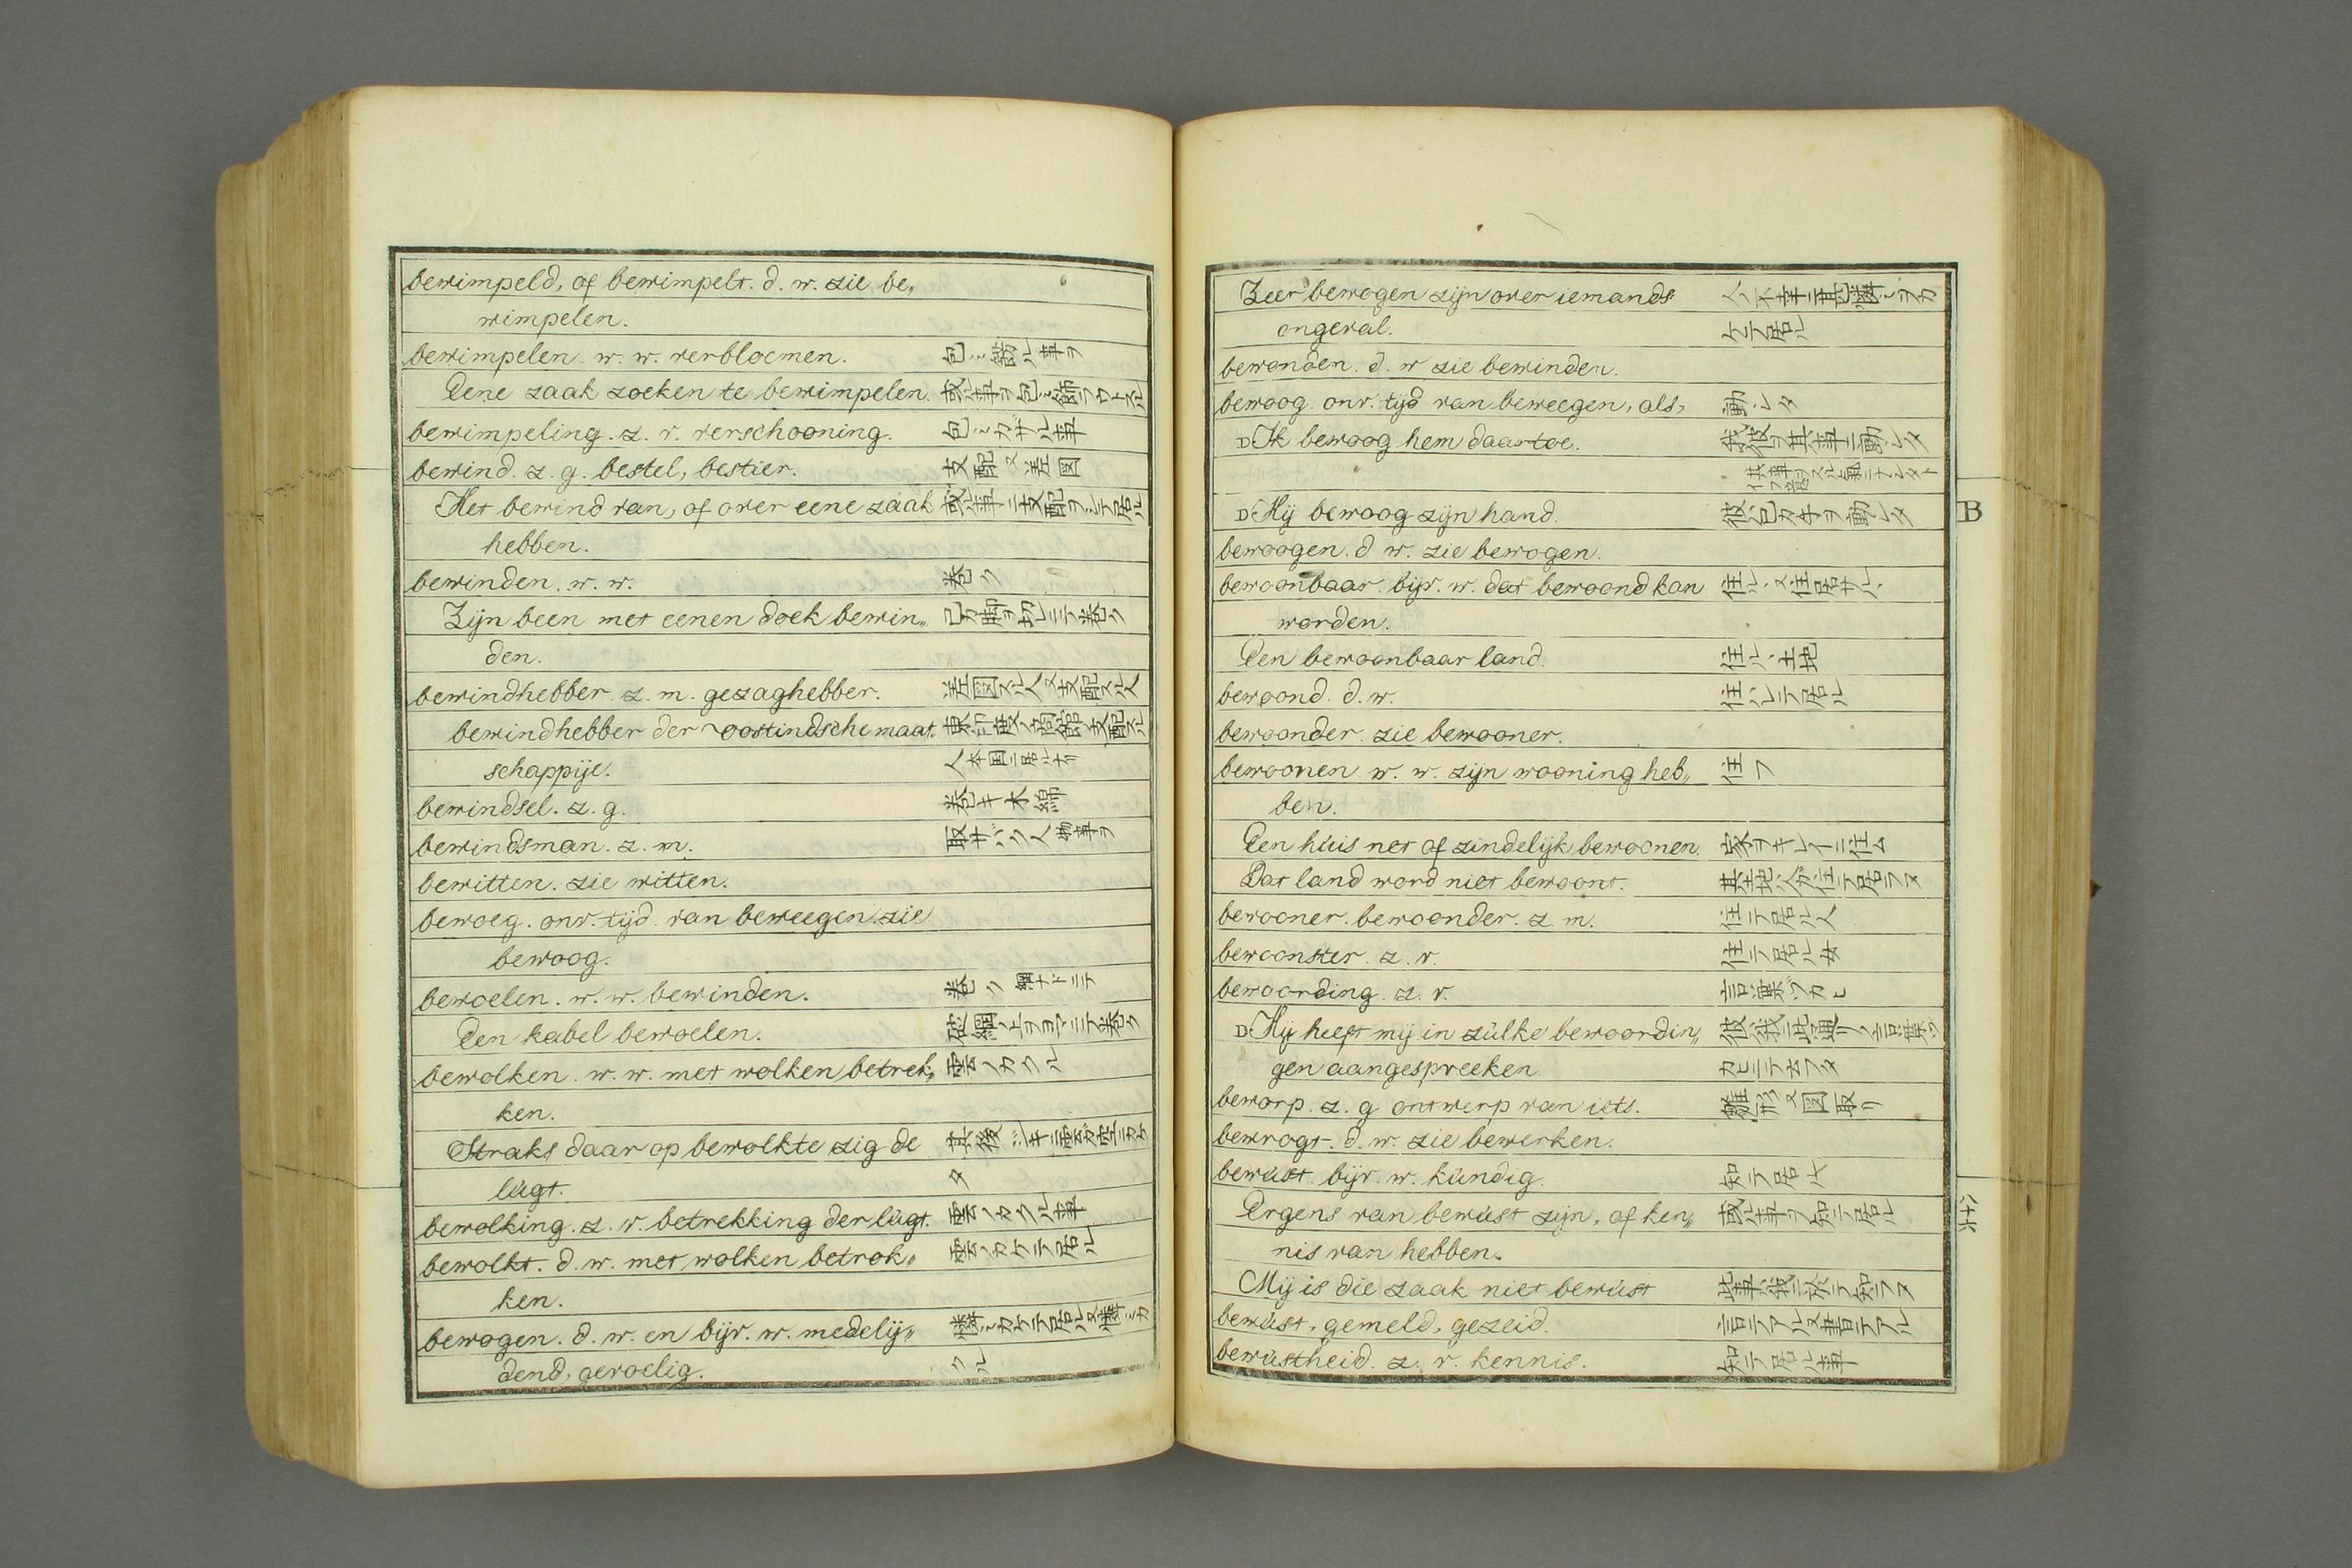 bewimpeld, of bewimpelt. d. w. zie be„
wimpelen.
bewimpelen. w. w. verbloemen. 包ミ餝ル事ヲ
Eene zaak zoeken te bewimpelen. 或ル事ヲ包ミ餝ラウトスル
bewimpeling. z. v. verschooning. 包ミカザル事
bewind. z. g. bestel, bestier. 支配又差図
Het bewind van, of over eene zaak 或ル事ニ支配ヲシテ居ル
hebben.
bewinden. w. w. 巻ク
Zijn been met eenen doek bewin„ 己カ脚ヲ切レニテ巻ク
den.
bewindhebber. z. m. gezaghebber. 差図スル人又支配スル人
bewindhebber der oostindsche maat. 東印度ノ商館ノ支配スル
schappije. 人本国ニ居ル者
bewindsel. z. g. 巻キ木綿
bewindsman. z. m. 取サバク人物事ヲ
bewitten. zie witten.
bewoeg. onv. tijd. van beweegen. zie
bewoog.
bewoelen. w. w. bewinden. 巻ク 縄ナドニテ
Een kabel bewoelen. 碇綱ノ上ヲヨマニテ巻ク
bewolken. w. w. met wolken betrek„ 雲ノカクル
ken.
Straks daar op bewolkte zig de 其後ジキニ雲ガ空ニカケ
lúgt. タ
bewolking. z. v. betrekking der lúgt. 雲ノカクル事
bewolkt. d. w. met wolken betrok„ 雲ノカケテ居ル
ken.
bewogen. d. w. en bijv. w. medelij„ 憐ミカケテ居ル又憐ミカ
dend, gevoelig. クル
Zeer bewogen zijn over iemands 人ノ不幸ニ甚憐ミヲカ
ongeval. ケテ居ル
bewonden. d. w zie bewinden.
bewoog. onv. tijd van beweegen, als, 動シタ
D Ik bewoog hem daartoe. 我彼ヲ其事ニ動シタ
D Hij bewoog zijn hand. 彼己カ手ヲ動シタ
B
bewoogen. d w. zie bewogen.
bewoonbaar. bijv. w. dat bewoond kan 住ル丶又住居サル丶
worden.
Een bewoonbaar land. 住ル丶土地
bewoond. d. w. 住ハレテ居ル
bewoonder. zie bewooner.
bewoonen. w. w. zijn wooning heb„ 住フ
ben.
Een húis net of zindelijk bewoonen. 家ヲキレイニ住ム
Dat land word niet bewoont. 其土地ハ人ガ住テ居ラヌ
bewooner. bewoonder. z. m. 住テ居ル人
bewoonster. z. v. 住テ居ル女
bewoording. z. v. 言葉ヅカヒ
D Hij heeft mij in zúlke bewoordin„ 彼我ニ此通リノ言葉ヅ
gen aangespreeken. カヒニテ云フタ
beworp. z. g ontwerp van iets. 雛形又図取リ
bewrogt. d. w. zie bewerken.
bewúst. bijv. w. kúndig. 知テ居ル
Ergens van bewúst zijn, of ken„ 或ル事ヲ知テ居ル
nis van hebben.
Mij is die zaak niet bewúst 此事ハ我ニ於テ知ラヌ
bewúst, gemeld, gezeid. 言テアル又書テアル
bewústheid. z. v. kennis. 知テ居ル事